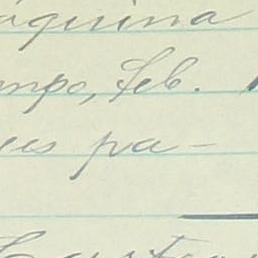 áquina
mpo, Feb.
ues pa-